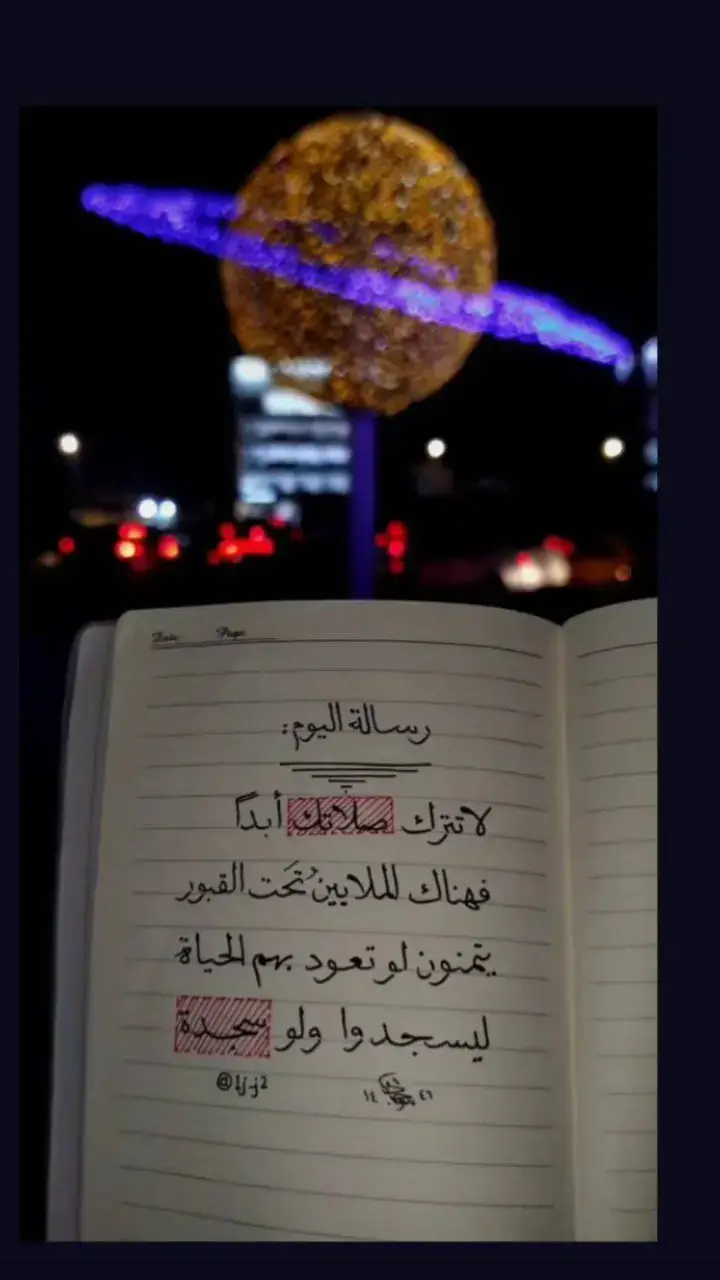 Date Page
رسالة اليوم:
لا تترك صلاتك أبداً
فهناك الملايين تَحت القبور
يتمنون لو تعود بهم الحياة
ليسجدوا ولو سجدة
@lj-j2
١٤ ٤٦